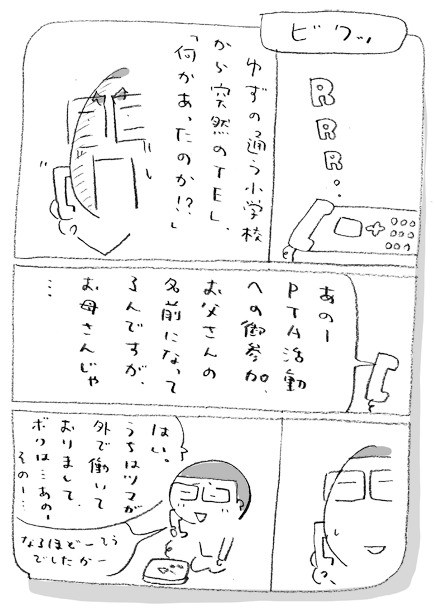 ビクッ
R
R
R
ゆずの通う小学校
から突然のTEL.
「何かあったのか!?」
あのー
PTA活動
への御参加、
お父さんの
名前になって
るんですが、
お母さんじゃ
…
はい。
うちはツマが
外で働いて
おりまして、
ボクは…あのー
そのー…
なるほどーそう
でしたかー